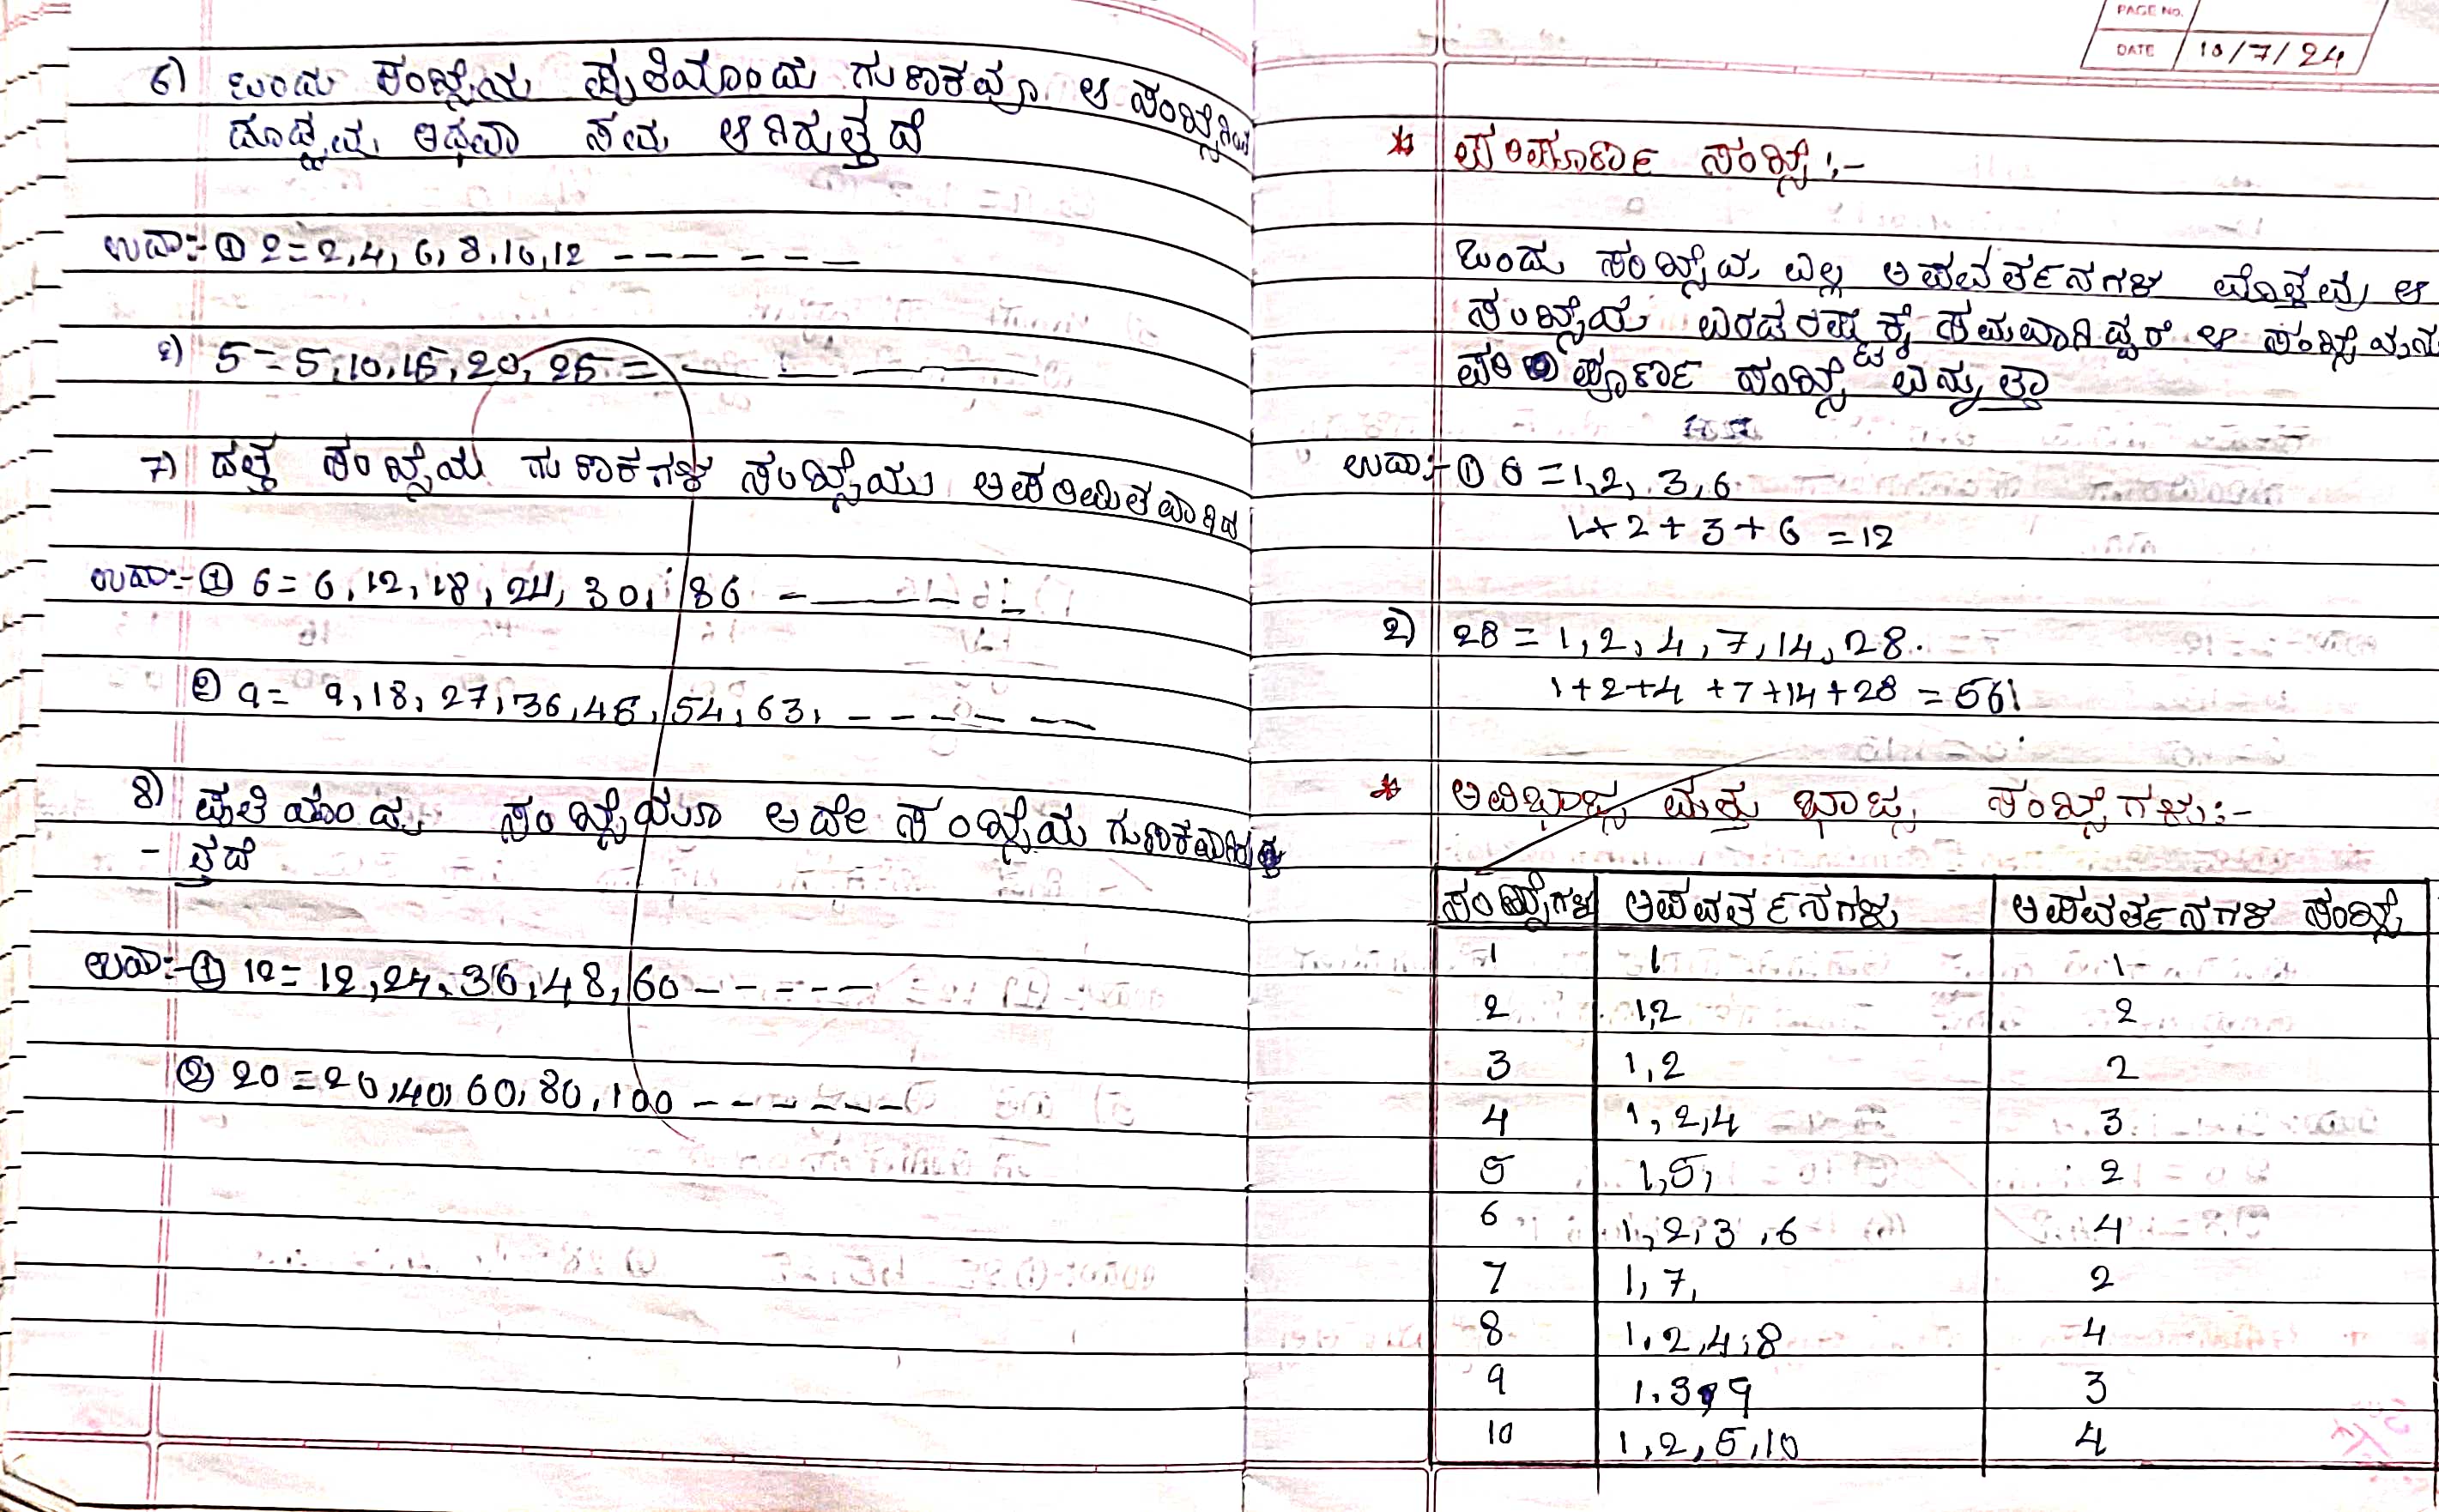 6) ಒಂದು ಸಂಖ್ಯೆಯ ಪ್ರತಿಯೊಂದು ಗುಣಕವೂ ಆ ಸಂಖ್ಯೆಗಿಂತ
ದೊಡ್ಡದು ಅಥವಾ ಸಮ ಆಗಿರುತ್ತದೆ
ಉದಾ:- ① 2=2,4, 6, 8,10,12 - - - - - - -
2) 5=5,10,15,20,25=
7) ದತ್ತ ಸಂಖ್ಯೆಯ ಗುಣಕಗಳ ಸಂಖ್ಯೆಯು ಅಪರಿಮಿತವಾಗಿದೆ
ಉದಾ:- ① 6= 6,12,18,24,30,36 - - - -
② 9= 9,18,27,36,45,54,63, - - - - - -
8) ಪ್ರತಿಯೊಂದು ಸಂಖ್ಯೆಯೂ ಅದೇ ಸಂಖ್ಯೆಯ ಗುಣಕವಾಗಿರು
- ತ್ತದೆ
ಉದಾ:- ① 12= 12,24,36,48,60 - - - - -
② 20=20,40,60,80,100 - - - - - -
PAGE NO.
DATE 10/7/24
* ಪರಿಪೂರ್ಣ ಸಂಖ್ಯೆ :-
ಒಂದು ಸಂಖ್ಯೆಯ ಎಲ್ಲ ಅಪವರ್ತನಗಳ ಮೊತ್ತವು ಆ
ಸಂಖ್ಯೆಯ ಎರಡರಷ್ಟಕ್ಕೆ ಸಮವಾಗಿದ್ದರೆ ಆ ಸಂಖ್ಯೆಯನ್ನು
ಪರಿಪೂರ್ಣ ಸಂಖ್ಯೆ ಎನ್ನುತ್ತಾ
ಉದಾ:- ① 6 = 1,2, 3,6
1+2+3+6 =12
2) 28 = 1,2,4,7,14,28.
1+2+4 +7+14+28 = 561
* ಅವಿಭಾಜ್ಯ ಮತ್ತು ಭಾಜ್ಯ ಸಂಖ್ಯೆಗಳು:-
ಸಂಖ್ಯೆಗಳು ಅಪವರ್ತನಗಳು ಅಪವರ್ತನಗಳ ಸಂಖ್ಯೆ
1 1 1
2 1,2 2
3 1,2 2
4 1,2,4 3
5 1,5, 2
6 1,2,3,6 4
7 1,7, 2
8 1,2,4,8 4
9 1,3,9 3
10 1,2,5,10 4